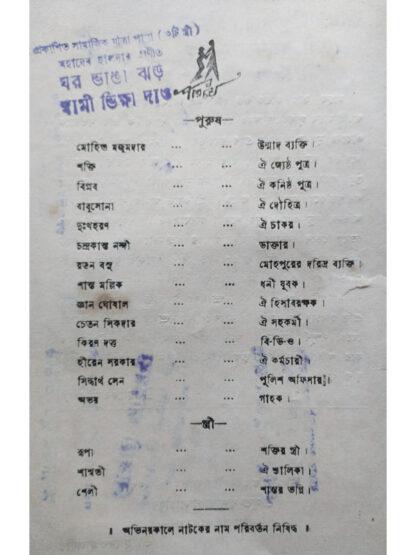 প্রকাশিত সামাজিক যাত্রা পালা (৩টি স্ত্রী)
মহাদেব হালদার প্রণীত
ঘর ভাঙা ঝড়
স্বামী ভিক্ষা দাও
—পুরুষ—
মোহিত মজুমদার ... ... উন্মাদ ব্যক্তি।
শক্তি ... ... ঐ জ্যেষ্ঠ পুত্র।
বিপ্লব ... ... ঐ কনিষ্ঠ পুত্র।
বাবুসোনা ... ... ঐ দৌহিত্র।
দুঃখহরণ ... ... ঐ চাকর।
চন্দ্রকান্ত নন্দী ... ... ডাক্তার।
রতন বসু ... ... মোহপুরের দরিদ্র ব্যক্তি।
শান্ত মল্লিক ... ... ধনী যুবক।
জ্ঞান ঘোষাল ... ... ঐ হিসাবরক্ষক।
চেতন সিকদার ... ... ঐ সহকর্মী।
কিরণ দত্ত ... ... বি-ডি-ও।
হীরেন সরকার ... ... ঐ কর্মচারী।
সিদ্ধার্থ সেন ... ... পুলিশ অফিসার।
অভয় ... ... গাহক।
—স্ত্রী—
রূপা ... ... শক্তির স্ত্রী।
শাশ্বতী ... ... ঐ শ্যালিকা।
শেলী ... ... শান্তর ভগ্নি।
॥ অভিনয়কালে নাটকের নাম পরিবর্তন নিষিদ্ধ ॥